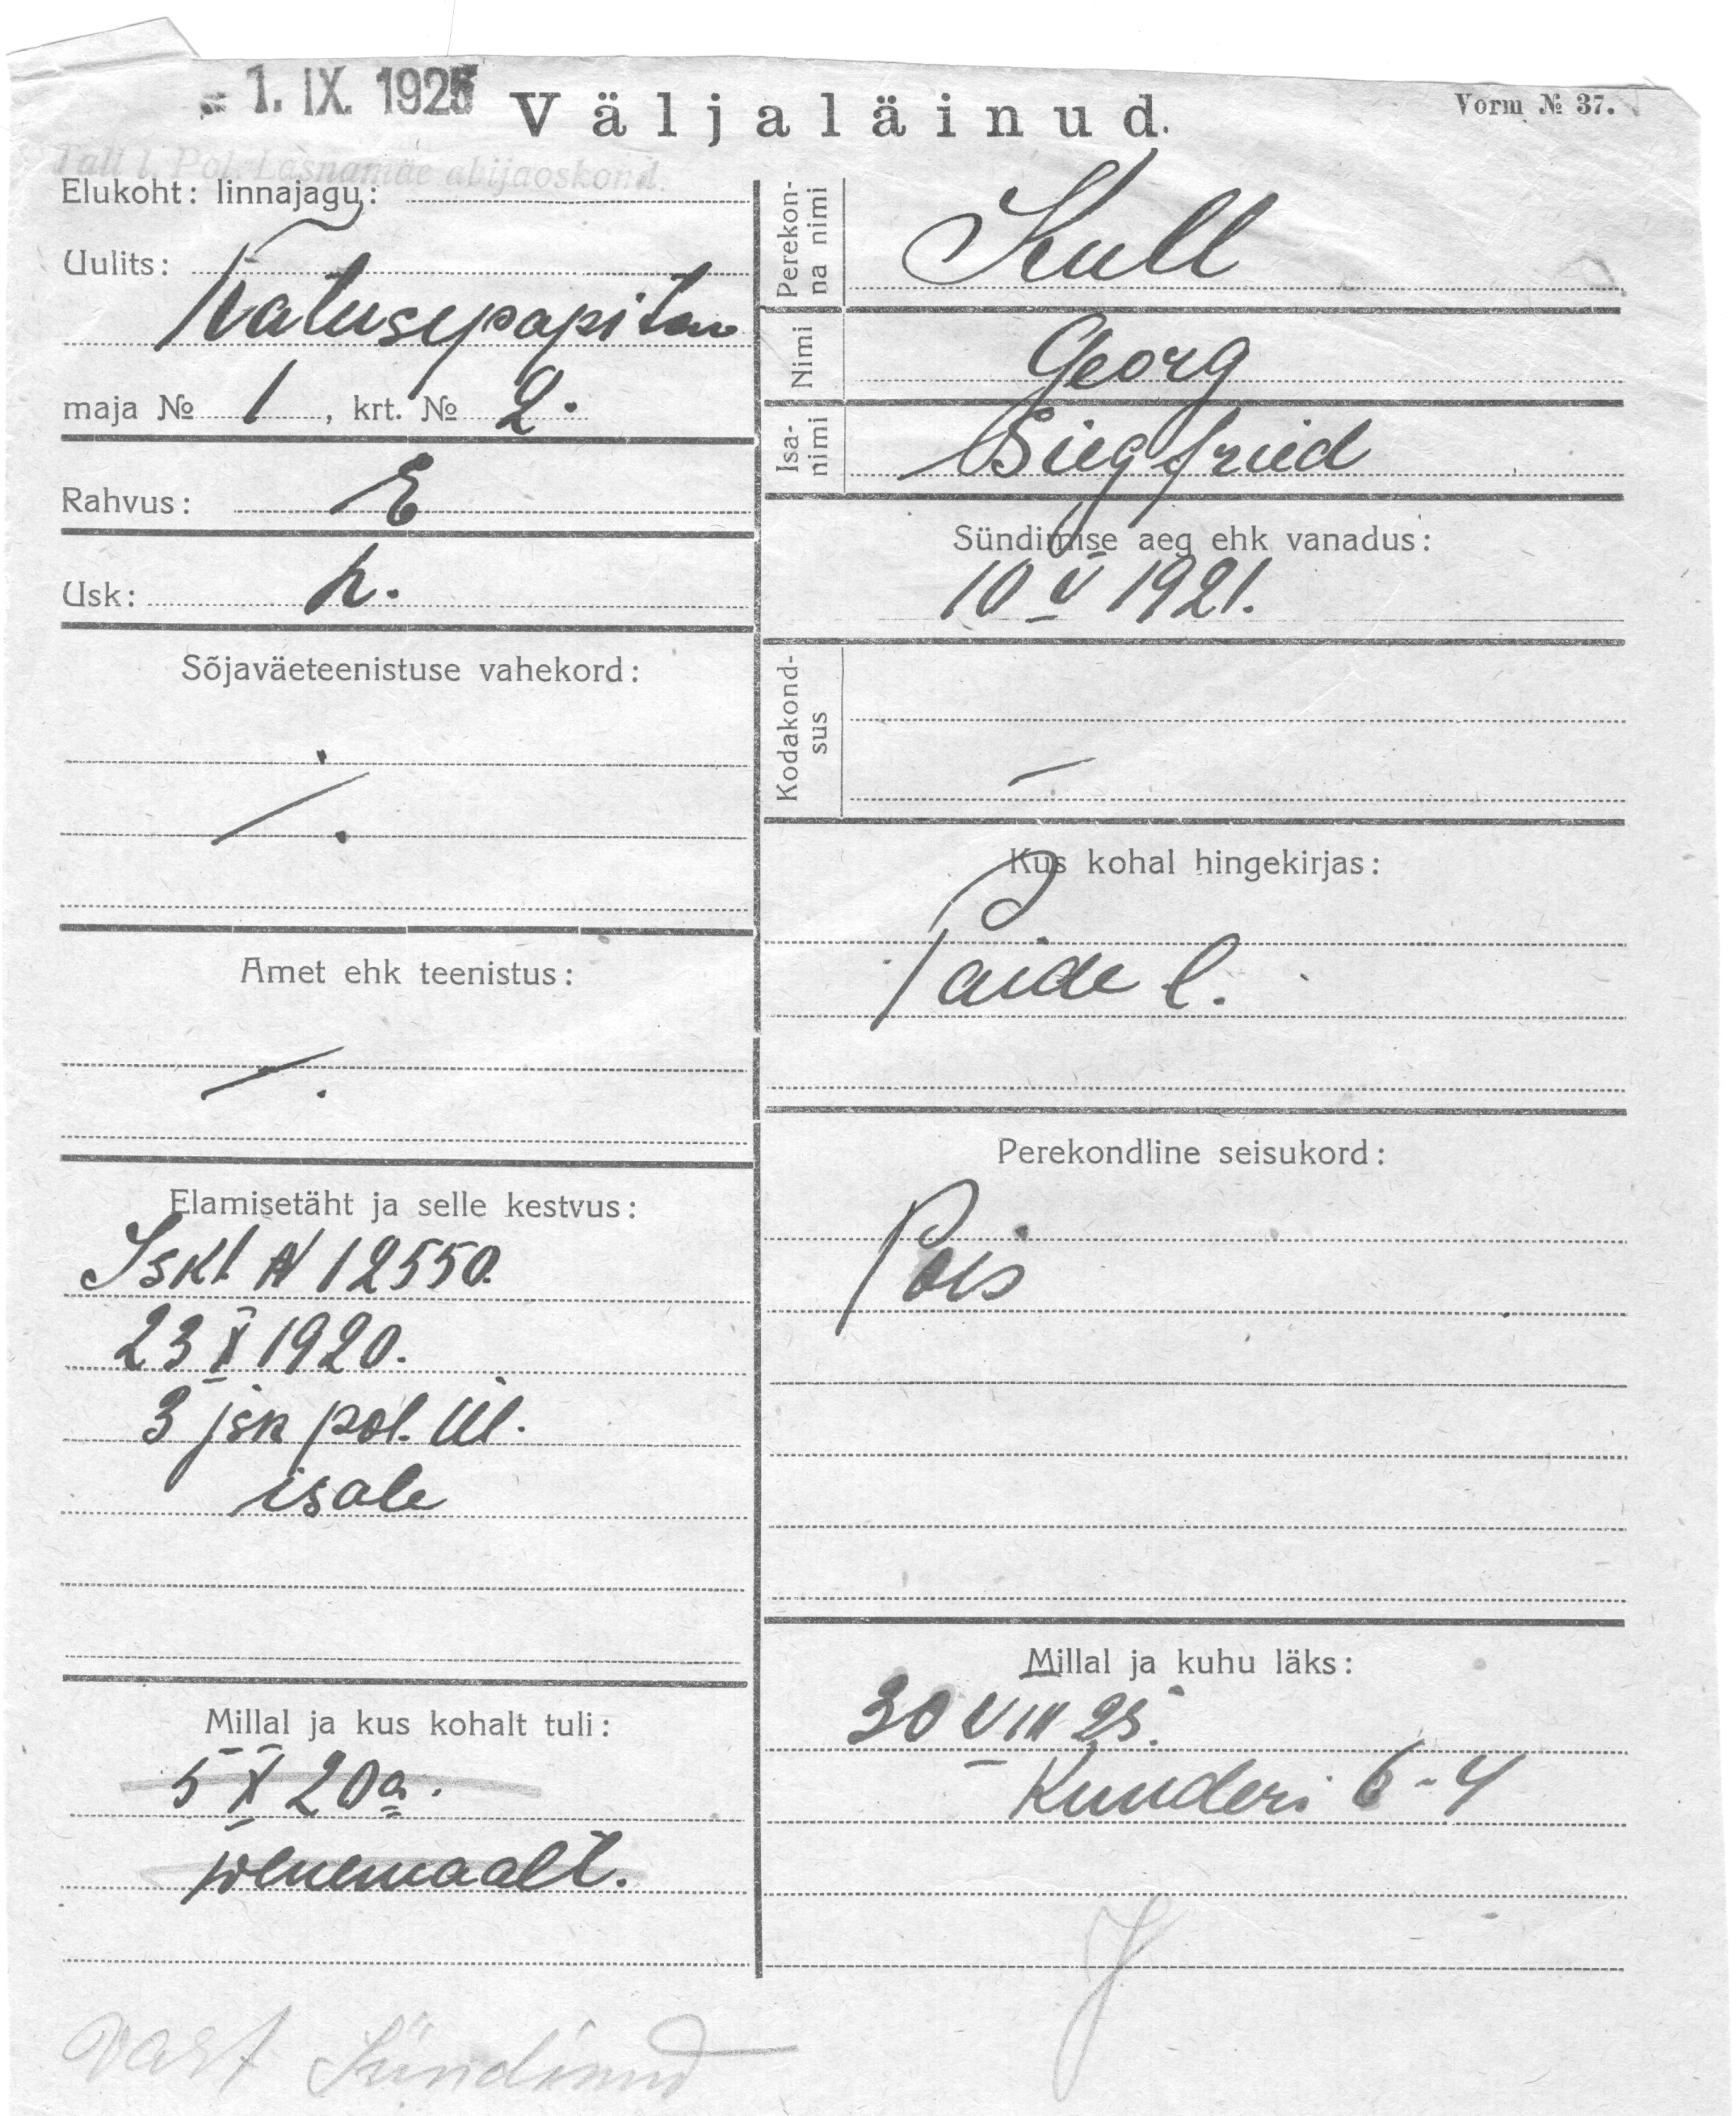 1. IX. 1925
Väljaläinud.
Vorm № 37.
Tall l. Pol. Lasnamäe abijaoskond.
Elukoht: linnajagu:
Uulits:
maja № 1, krt. № 2.
Rahvus: E
Usk: h.
Sõjaväeteenistuse vahekord:
Amet ehk teenistus:
Elamisetäht ja selle kestvus:
Iskt № 12550.
23 X 1920.
3 jsk pol. ül.
isale
Millal ja kus kohalt tuli:
5 X 20 a.
wenemaalt.
Perekonna nimi
Kull
Nimi
Georg
Isanimi
Siegfried
Sündimise aeg ehk vanadus:
10 V 1921.
Kodakondsus
—
Kus kohal hingekirjas:
Paide l.
Perekondline seisukord:
Pois
Millal ja kuhu läks:
30 VIII 25.
Kunderi 6-4
vast Sündinud